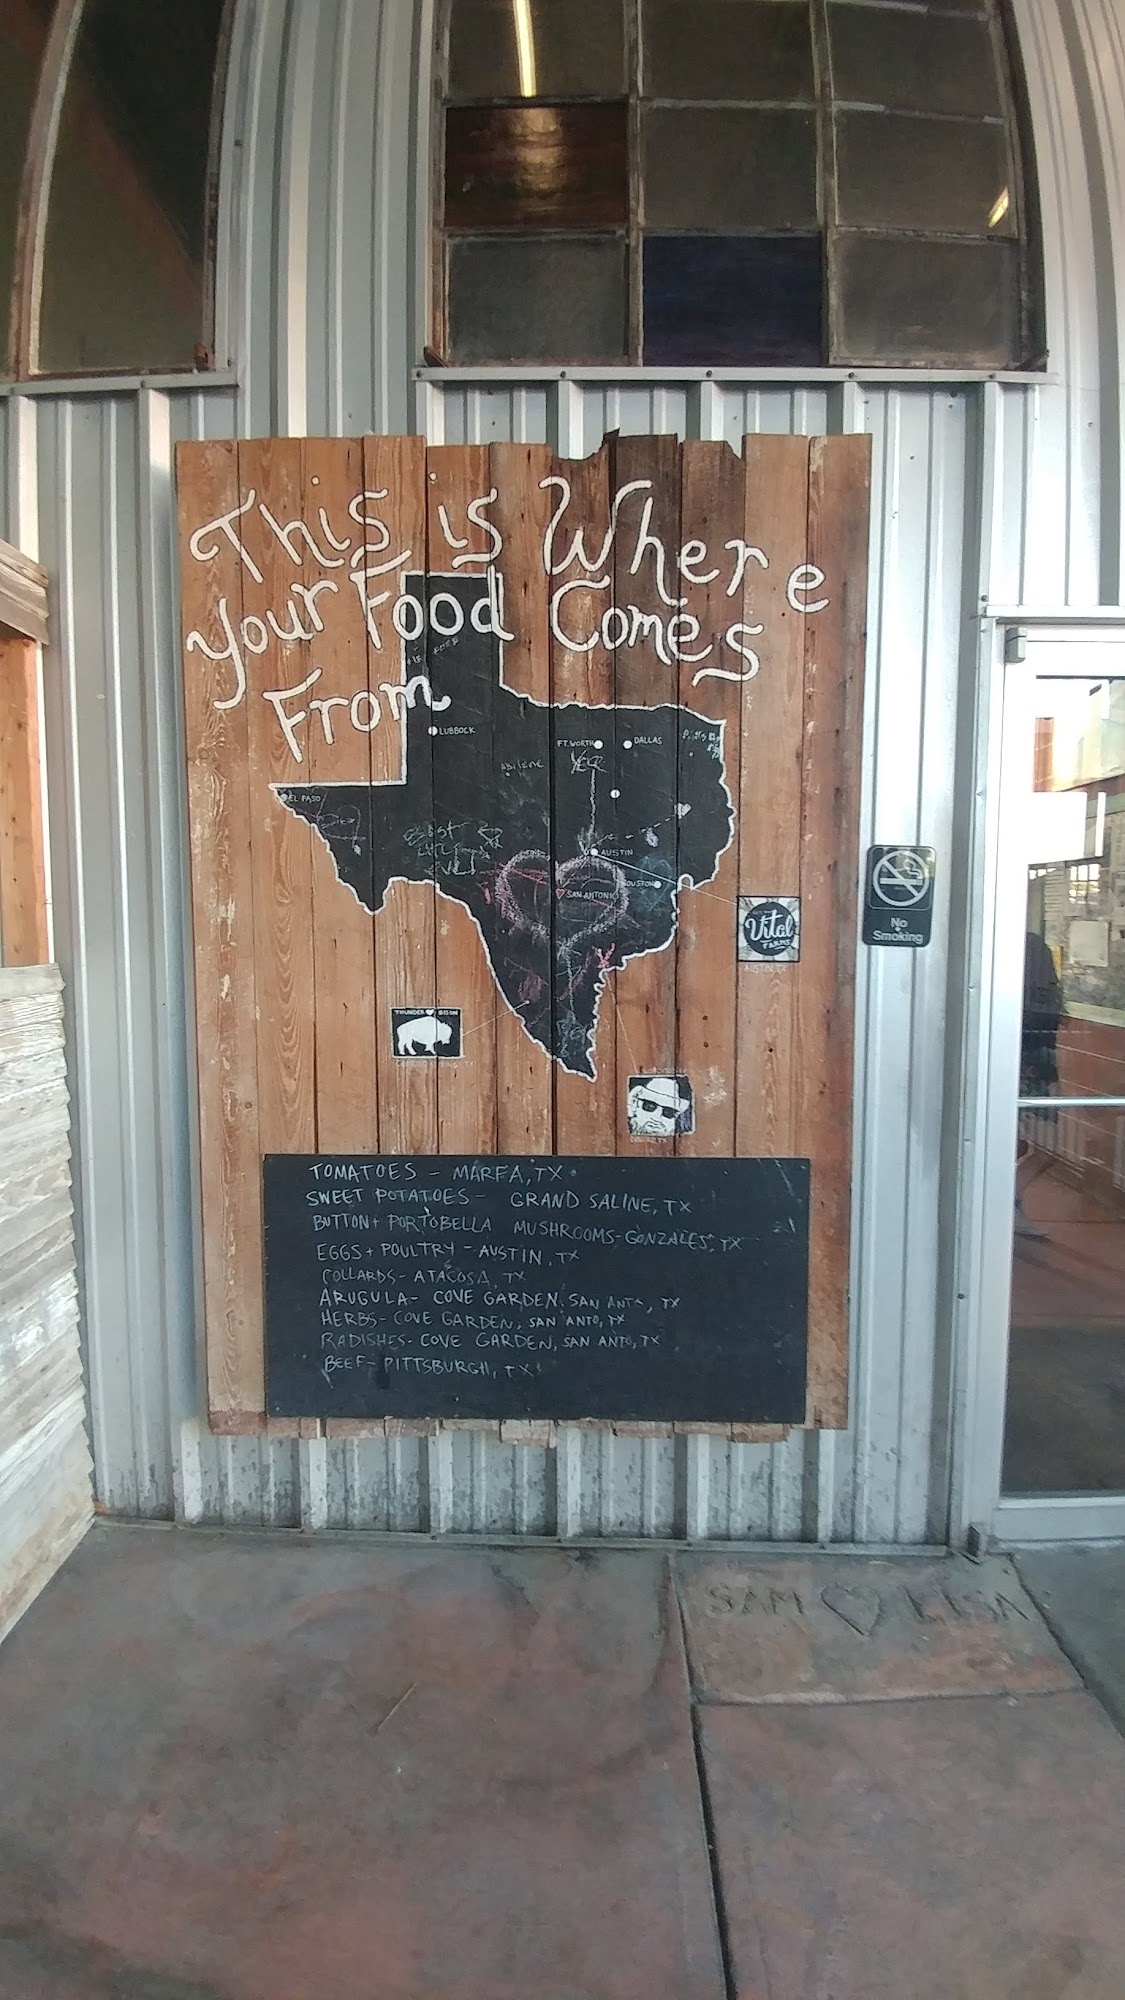 This is Where
your Food Comes
From
LUBBOCK
FT. WORTH
DALLAS
Abilene
EL PASO
AUSTIN
SAN ANTONIO
HOUSTON
Vital
FARMS
AUSTIN, TX
THUNDER BISON
No
Smoking
TOMATOES - MARFA, TX
SWEET POTATOES - GRAND SALINE, TX
BUTTON + PORTOBELLA MUSHROOMS - GONZALES, TX
EGGS + POULTRY - AUSTIN, TX
COLLARDS - ATACOSA, TX
ARUGULA - COVE GARDEN, SAN ANTO, TX
HERBS - COVE GARDEN, SAN ANTO, TX
RADISHES - COVE GARDEN, SAN ANTO, TX
BEEF - PITTSBURGH, TX
SAM LISA